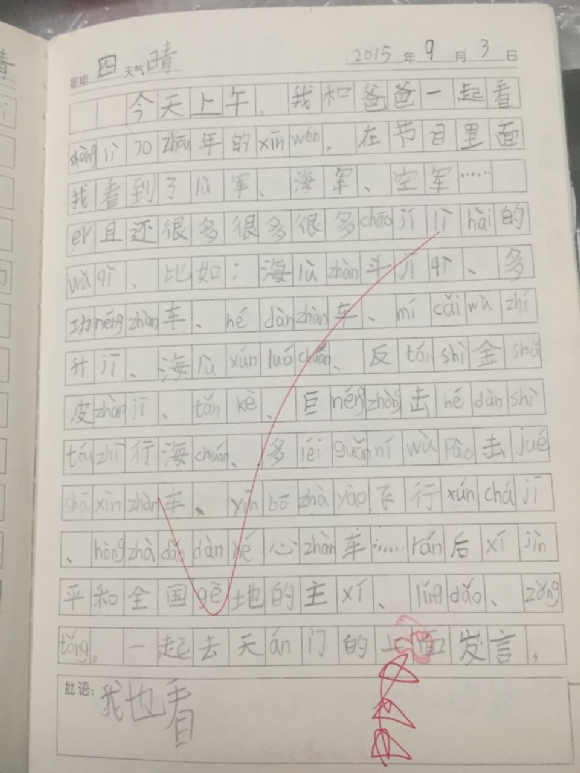 星期 四 天气 晴 2015 年 9 月 3 日
今天上午,我和爸爸一起看
shèng lì 70 zhōu 年的 xīn wén。在节目里面
我看到了 lù 军、海军、空军……
ér 且还很多很多很多 chāo jí lì hài 的
wǔ qì、比如:海 lù zhàn 斗 jī qì、多
功 néng zhàn 车、hé dàn zhàn 车、mí cǎi wǔ zhí
升 jī、海 lù xún luó chuán、反 tán shì 金 shǔ
皮 zhàn jī、tǎn kè、巨 néng zhòng 击 hé dàn shì
zhī 行海 chuán、多 léi guǎn ní wù pào 击 jué
shā xīn zhàn 车、yǐn bō zhà yào 飞行 xún chá jī
、hōng zhà dǎn dàn hé 心 zhàn 车……rán 后 xí jìn
平和全国 gè 地的主 xí、lǐng dǎo、zǒng
tǒng。一起去天 ān 门的上面发言。
批语: 我也看